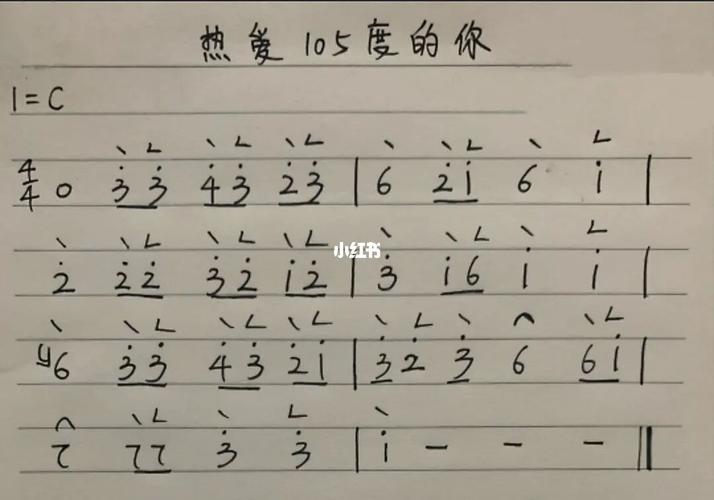 热爱105度的你
1=C
4/4 0 3̇3̇ 4̇3̇ 2̇3̇ | 6 2̇1̇ 6 1̇ |
2̇ 2̇2̇ 3̇2̇ 1̇2̇ | 3̇ 1̇6 1̇ 1̇ |
6 3̇3̇ 4̇3̇ 2̇1̇ | 3̇2̇ 3̇ 6 61̇ |
7 77 3̇ 3̇ | 1̇ - - - ‖
小红书